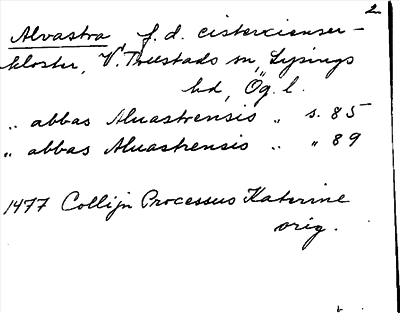 2.
Alvastra, f.d. cistercienser-
kloster, V. Tollstads sn, Lysings
hd, Ög. l.
„ abbas Aluastrensis „ s. 85
„ abbas Aluastrensis „ „ 89
1477 Collijn Processus Katerine
orig.